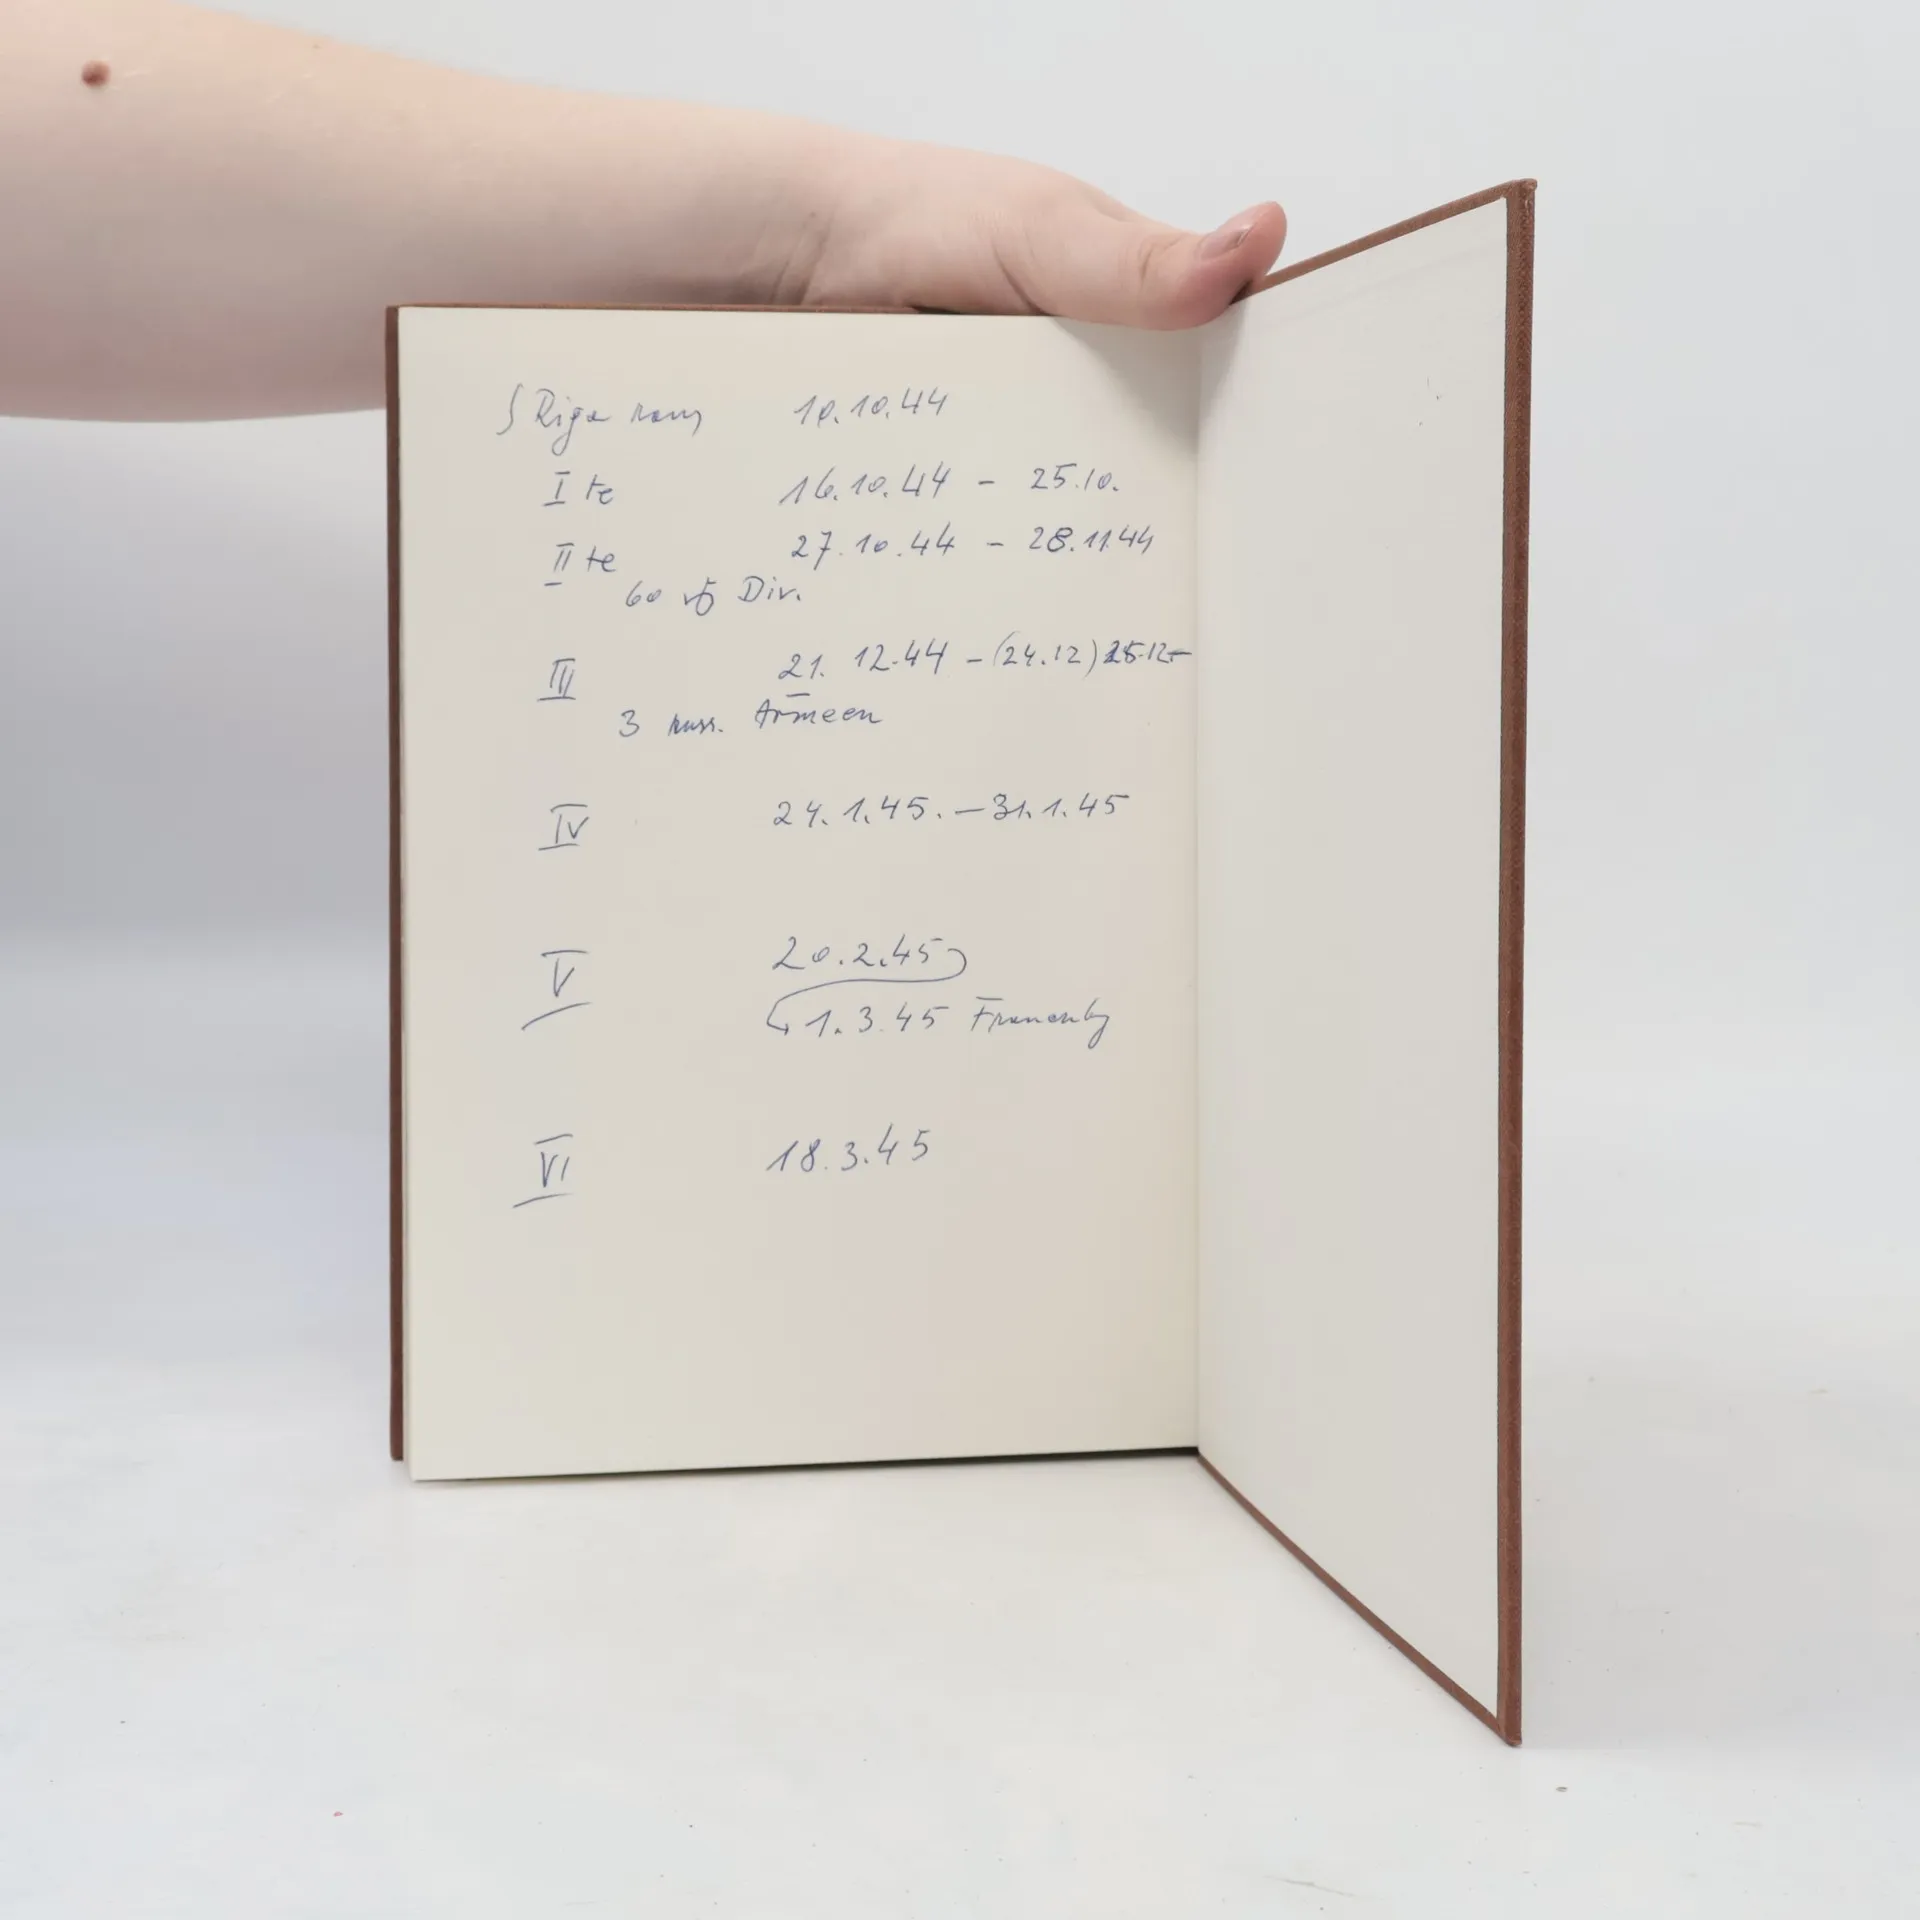 Riga raus 10.10.44
I te 16.10.44 - 25.10.
II te 27.10.44 - 28.11.44
60 Div.
III 21. 12.44 - (24.12) 25.12-
3 russ. Armeen
IV 24.1.45. - 31.1.45
V 20.2.45
1.3.45 Frauenbg
VI 18.3.45